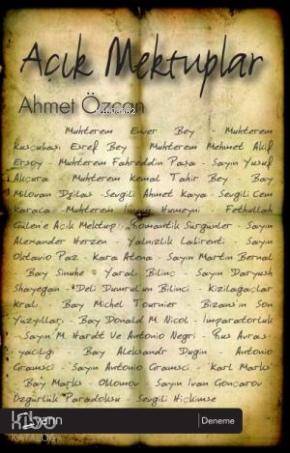 Açık Mektuplar
Ahmet Özcan
Muhterem Enver Bey - Muhterem
Kuşçubaşı Eşref Bey - Muhterem Mehmet Akif
Ersoy - Muhterem Fahreddin Paşa - Sayın Yusuf
Akçura - Muhterem Kemal Tahir Bey - Bay
Milovan Djilas - Sevgili Ahmet Kaya - Sevgili Cem
Karaca - Muhterem İmam Humeyni - Fethullah
Gülen'e Açık Mektup - Romantik Sürgünler - Sayın
Alexander Herzen - Yalnızlık Labirenti - Sayın
Oktavio Paz - Kara Atena - Sayın Martin Bernal
- Bay Sinuhe - Yaralı Bilinç - Sayın Daryush
Shayegan - "Deli Dumrul'un Bilinci - Kızılağaçlar
Kralı - Bay Michel Tournier - Bizans'ın Son
Yüzyılları - Bay Donald M. Nicol - İmparatorluk
- Sayın M. Hardt Ve Antonio Negri - Rus Avras-
yacılığı - Bay Aleksandr Dugin - Antonio
Gramsci - Sayın Antonio Gramsci - Karl Marks'
- Bay Marks - Oblomov - Sayın İvan Gonçarov
Özgürlük Paradoksu - Sevgili Hiçkimse
Deneme